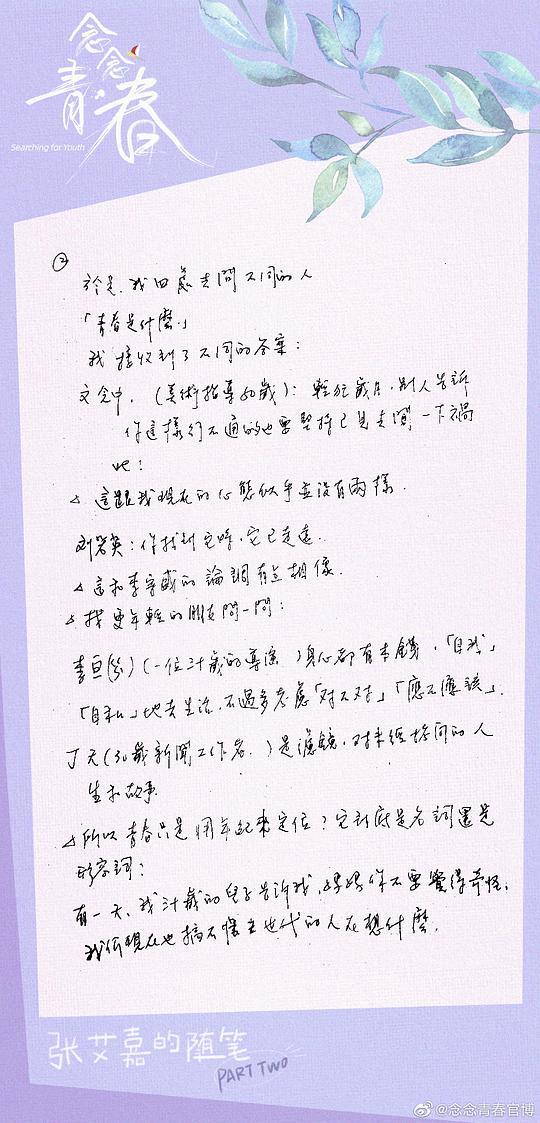 念念
青春
Searching for Youth
②
於是,我四處去問不同的人
「青春是什麼」
我接收到了不同的答案:
文念中,(美術指導50歲):輕狂歲月,別人告訴
你這樣行不通的也要堅持己見去闖一下禍
吧!
△ 這跟我現在的心態似乎並沒有兩樣.
刘若英:你找到它時,它已走遠.
△ 這和李宗盛的論調有点相像.
△ 找更年輕的朋友問一問:
李亘(一位卅歲的導演)身心都有本錢,「自我」
「自私」地去生活,不過多考慮「对不对」「應不應該」.
丁天(30歲新聞工作者)是濾鏡,对未經修飾的人
生和故事.
△ 所以青春只是用年紀來定位?它到底是名詞還是
形容詞?
有一天,我卅歲的兒子告訴我,媽媽你不要覺得奇怪,
我們現在也搞不懂去世代的人在想什麼.
张艾嘉的随笔
PART TWO
@念念青春官博